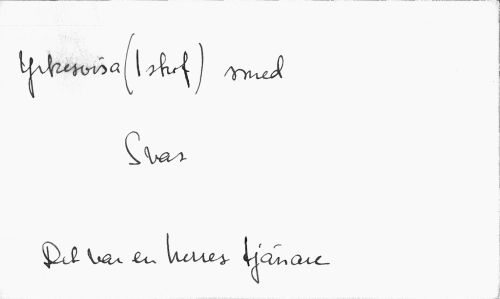 Yrkesvisa (1 strof) smed
Svar
Det var en herres tjänare